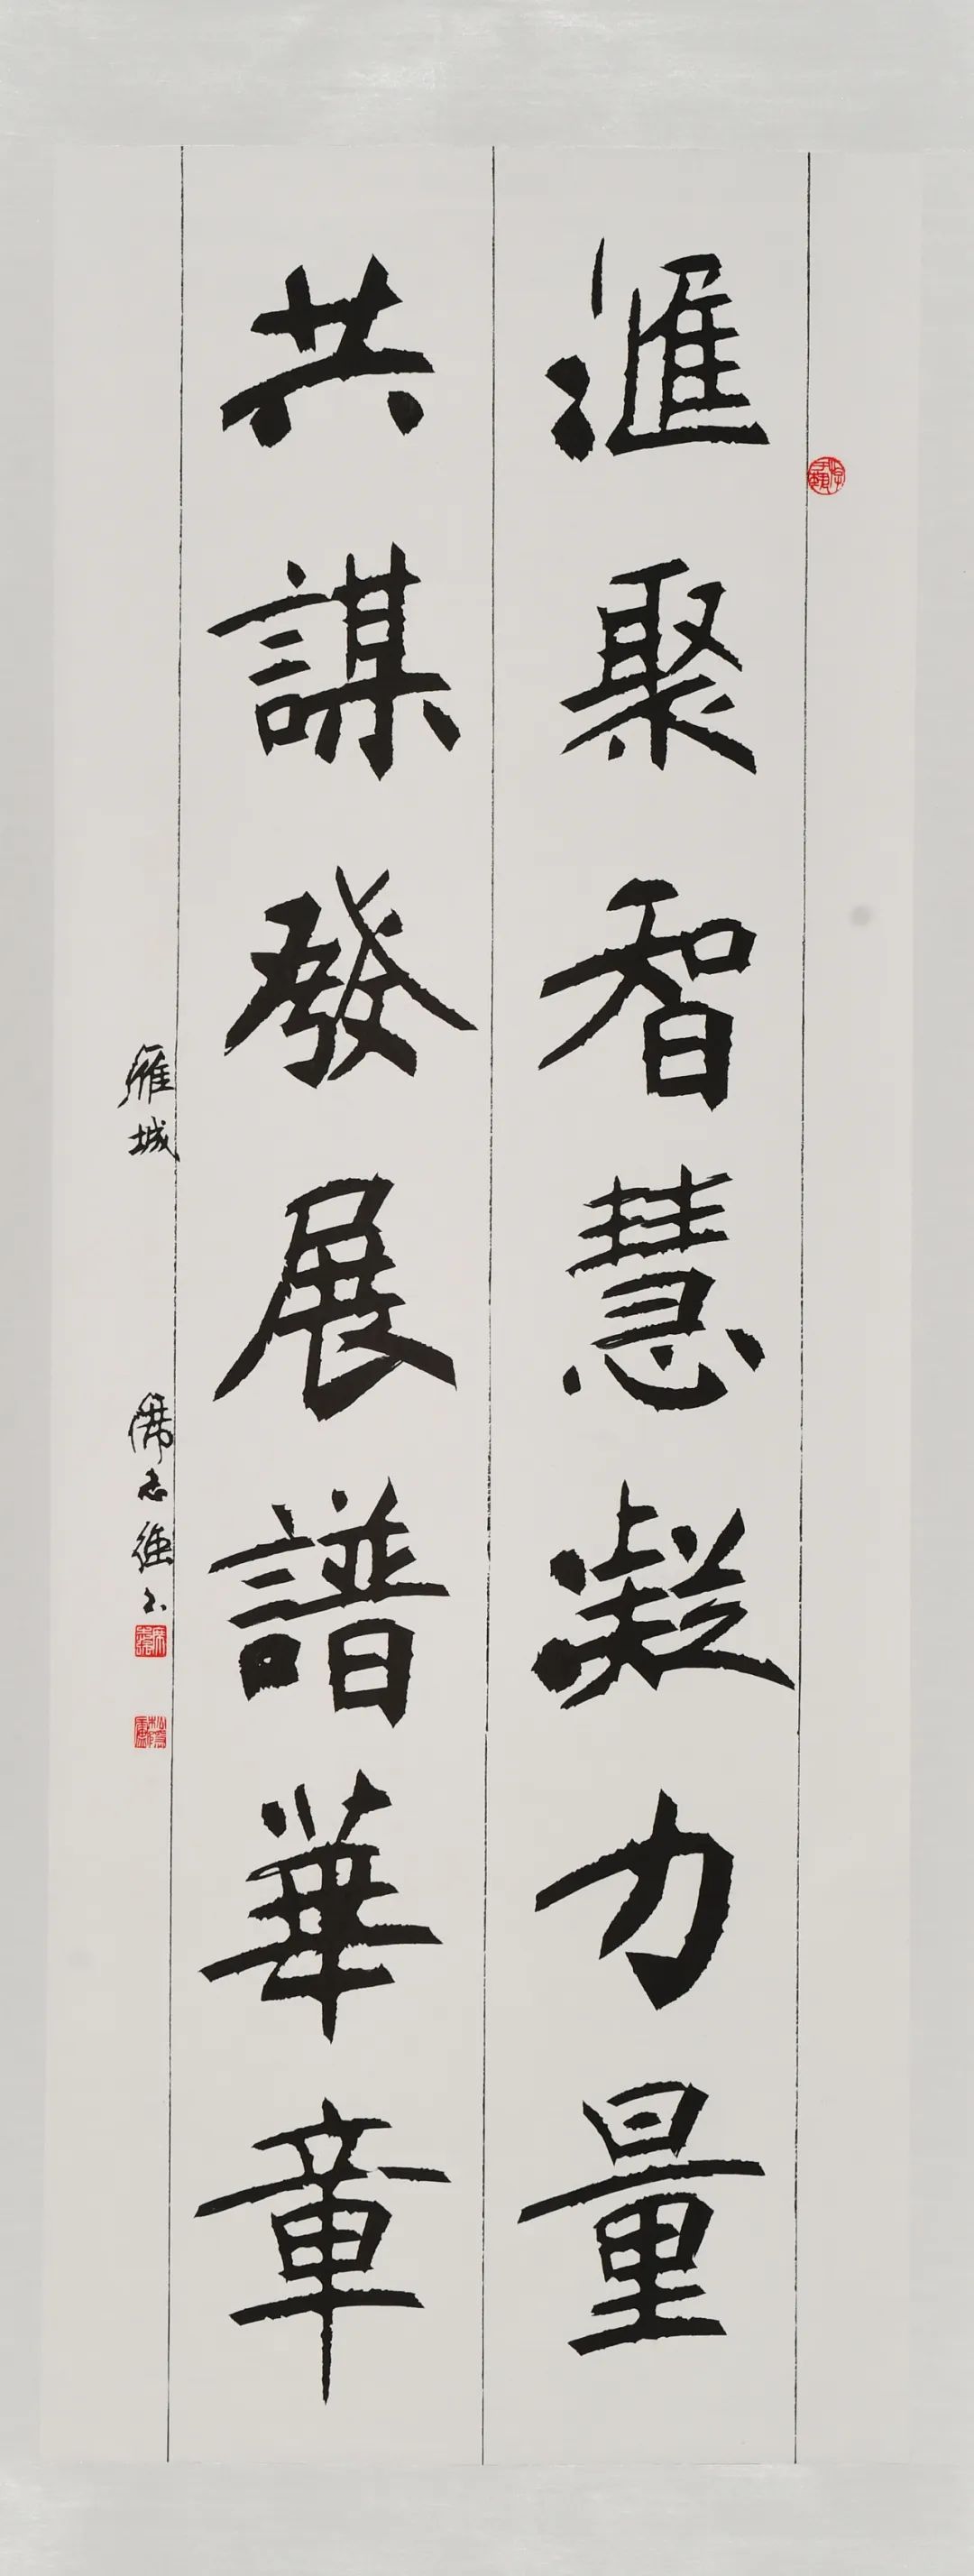 滙聚智慧凝力量
共謀發展譜華章
雁城
席志強书